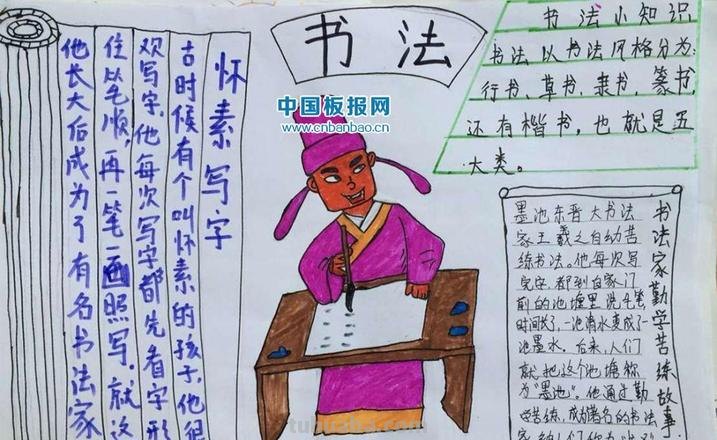 书法
中国板报网
www.cnbanbao.cn
怀素写字
古时候有个叫怀素的孩子,他很
欢写字,他每次写字都先看字形
住笔顺,再一笔一画照写,就这
他长大后成为了有名书法家
书法小知识
书法以书法风格分为:
行书、草书、隶书、篆书,
还有楷书,也就是五
大类。
书法家勤学苦练故事
墨池东晋大书法
家王羲之自幼苦
练书法。他每次写
完字,都到自家门
前的池塘里洗毛笔
时间长了,一池清水变成了一
池墨水。后来,人们
就把这个池塘称
为“墨池”。他通过勤
学苦练,成为著名的书法